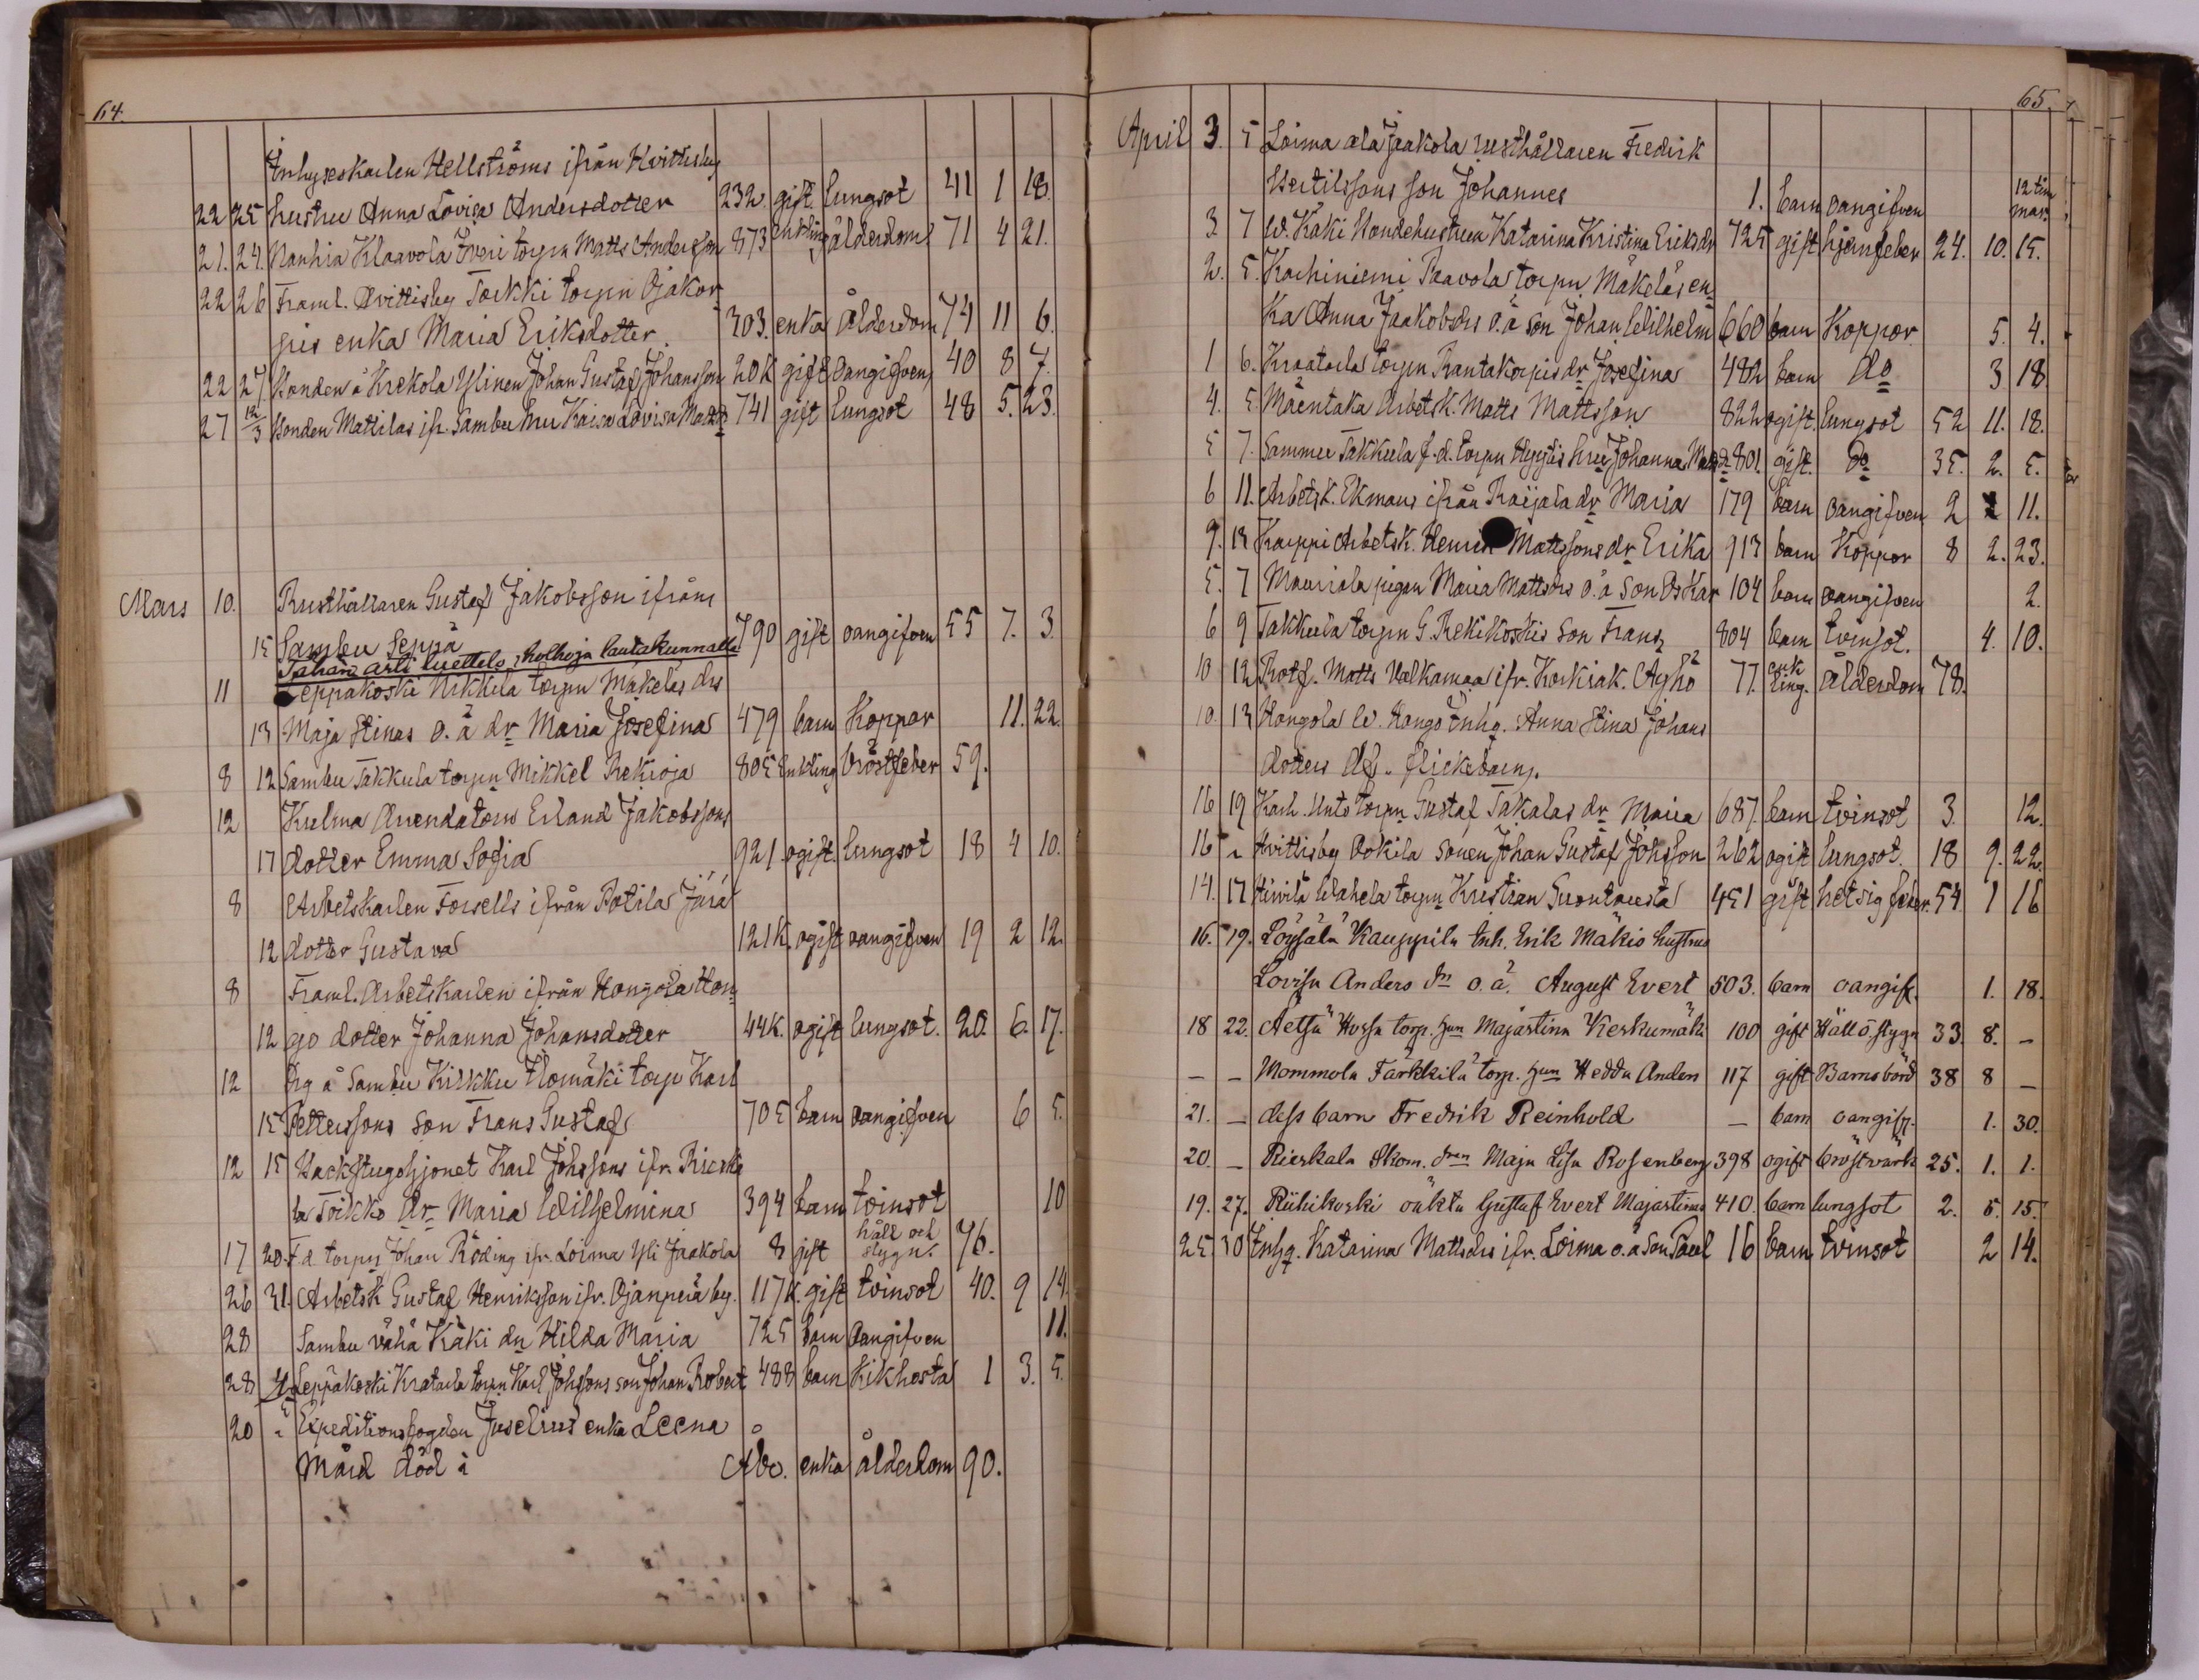 64.
Inhyseskarlen Hellströms ifrån Kvittisby
22 25 hustru Anna Lovisa Andersdotter 232. gift. lungsot 41 1 18.
21. 24. Nanhia Klaavola Iveri torpn Matts Andersson 873 enkling ålderdom 71 4 21.
22 26 Framl. Kvittisby Torkki torpn Ojakor
pis enka Maria Eriksdotter. 303. enka Ålderdom 74 11 6.
22 27. Bonden å Krekola Ylinen Johan Gustaf Johansson 20K gift oangifven 40 8 7.
27 12/3 Bonden Mattilas ifr. Sambu hru Kaisa Lovisa Mattsdr 741 gift lungsot 48 5. 23.
Mars 10. Rusthållaren Gustaf Jakobsson ifrån
15 Sambu Seppä 790 gift oangifven 55 7. 3.
Tähän asti luettelo, holhoja lautakunnalle
11 Leppäkoski Nikkila torpn Mäkeläs drs
13 Maja Stinas o. ä dr Maria Josefina 479 barn Koppor 11. 22.
8 12 Sambu Takkula torpn Mikkel Rekioja 805 Enkling bröstfeber 59.
12 Kulma Arendatorns Erland Jakobssons
17 dotter Emma Sofia 921. ogift. lungsot 18 4 10.
8 Arbetskarlen Forsells ifrån Potila Jära
12 dotter Gustava 121K. ogift oangifven 19 2 12.
8 Framl. Arbetskarlen ifrån Hongola Hon
12 go dotter Johanna Johansdotter 44K. ogift lungsot. 20. 6. 17.
12 Drg å Sambu Kirkku Ylomäki torp Karl
15 Petterssons son Frans Gustaf 705 barn oangifven 6 5.
12 15 Backstugohjonet Karl Johssons ifr. Rieska
la Toikko dr Maria Wilhelmina 394 barn tvinsot 10
17 20. Fd torpn Johan Röding ifr. Loima Yli Jaakola 8 gift håll och stygn. 76.
26 31. Arbetsk Gustaf Henriksson ifr. Ojanperä by. 117K. gift tvinsot 40. 9 14.
28 Sambu vähä Käki dn Hilda Maria 725 barn Oangifven 11.
28 4 Leppäkoski Krataala torpn Karl Johssons son Johan Robert 488 barn Kikhosta 1 3. 5.
20 " Expeditionsfogden Juselius enka Leena
Mård död i Åbo. enka ålderdom 90.
65.
April 3. 5 Loima ala Jaakola rusthållaren Fredrik
Bertilssons son Johannes 1. barn oangifven 12 tim mar.
3 7 W. Käki Bondehustrun Katarina Kristina Eriksdr 725 gift hjernfeber 24. 10. 15.
2. 5. Karhiniemi Paavola torpn Mäkeläs en
ka Anna Jaakobsdrs o. ä son Johan Wilhelm 660 barn Koppor 5. 4.
1 6. Kraataala torpn Rantakorpis dr Josefina 482 barn do 3 18.
4. 5. Mäentaka Arbetsk. Matts Mattsson 822 ogift. lungsot 52 11. 18.
5 7. Sammu Takkula f.d. torpn Hyytis hru Johanna Matsdr 801. gift. do 35. 2. 5.
6 11. Arbetsk. Ekmans ifrån Raijala dr Maria 179 barn oangifven 2 11.
9. 13 Karppi Arbetsk. Henrik Mattssons dr Erika 913 barn Koppor 8 2. 23.
5. 7 Mauriala pigan Maria Mattsdrs o. ä son Oskar 104 barn oangifven 2.
6 9 Takkula torpn G. Rekikoskis son Frans 804 barn tvinsot. 4. 10.
10 12 Rotf. Matts Valkamaa ifr. Korkiak. Aghö 77. enkling. ålderdom 78.
10. 13 Hongola W. Hongo Inhg. Anna Stina Johans
dotters df. flickebarn.
16 19 Karh. Unto torpn Gustaf Takalas dr Maria 687. barn tvinsot 3. 12.
16 " Kvittisby Ookila sonen Johan Gustaf Johsson 262 ogift lungsot. 18 9. 22.
14. 17 Hinnila Wahela torpn Kristian Suontausta 451 gift hetsig feber. 54 1 16
16. 19. Löysälä Kauppila Inh. Erik Mäkis hustrus
Lovisa Anders dr o. ä. August Evert 503. barn oangif. 1. 18.
18 22. Aetsä Hossa torp. hun Majastina Keskumäki 100 gift Håll o. stygn 33. 8. –
– – Mommola Färkkilä torp. hun Hedda Anders 117 gift Barnsbörd 38 8 –
21. – dess barn Fredrik Reinhold – barn oangifv. 1. 30.
20. – Rieskala Skom. dren Maja Lisa Rosenberg 398 ogift bröstvärk 25. 1. 1.
19. 27. Riihikoski oäkta Gustaf Evert Majastinas 410. barn lungsot 2. 5. 15.
25 30 Inhg. Katarina Mattsdrs ifr. Loima o. ä son Paul 16 barn tvinsot 2 14.